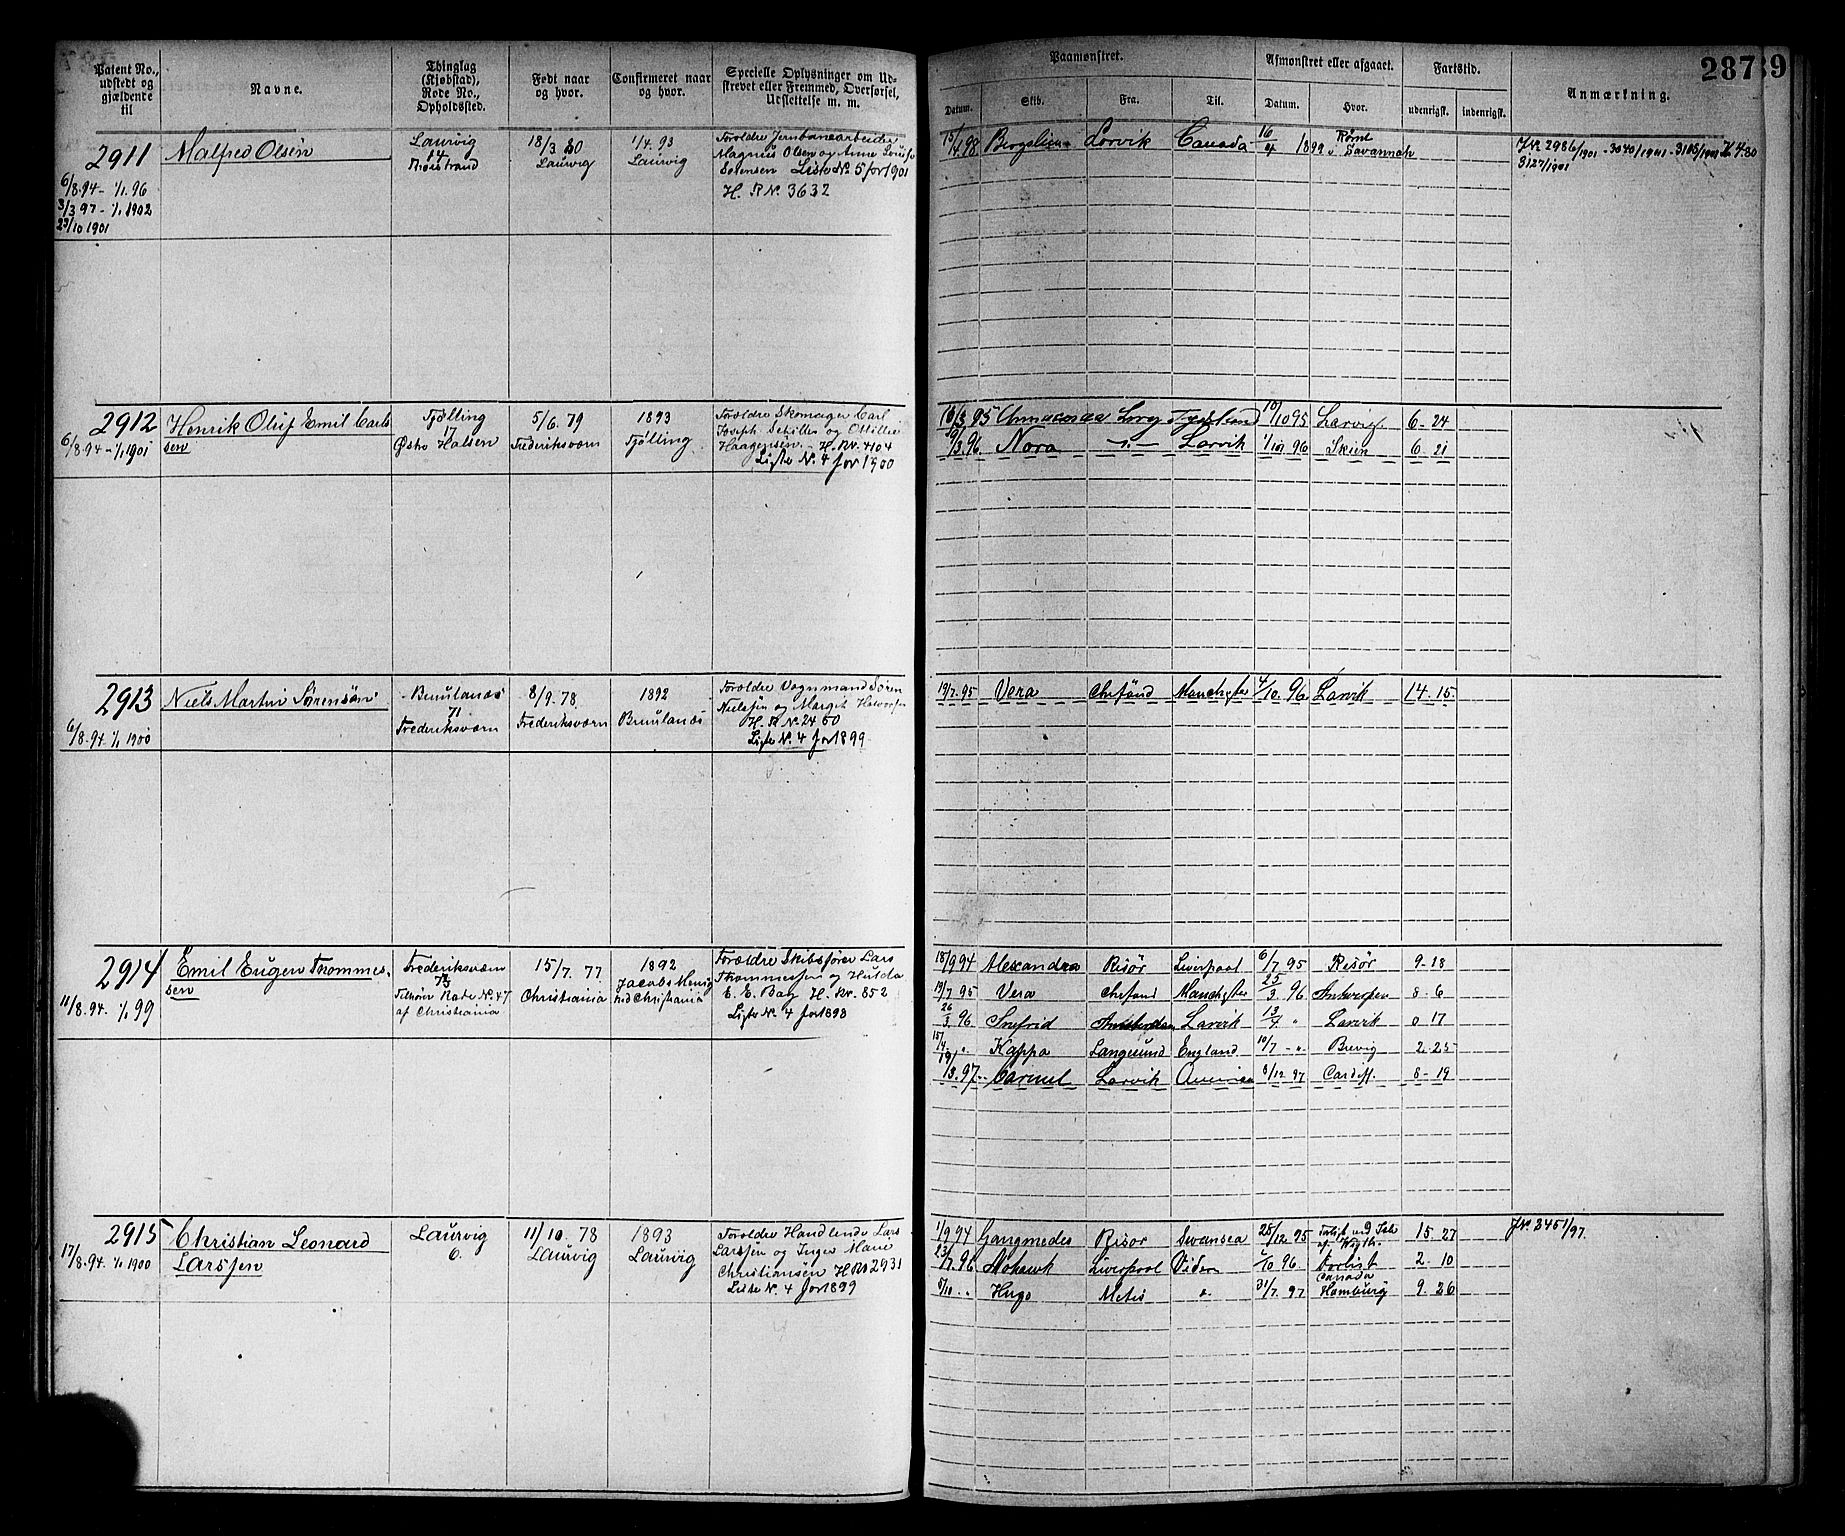 Patent No., udstedt og gjældende til
Navne.
Thinglag (Kjøbstad), Rode No., Opholdssted.
Født naar og hvor.
Confirmeret naar og hvor.
Specielle Oplysninger om Udstrevet eller Fremmed, Overførsel, Udslettelse m. m.
Paamønstret.
Datum.
Skib.
Fra.
Til.
Afmønstret eller afgaaet.
Datum.
Hvor.
Fartstid.
udenrigsk.
indenrigsk.
Anmærkning.
287
9
2911
6/8.94 - 1/1.96
3/3 97 - 1/1 1902
23/10 1901
Malfred Olsen
Laurvig
14
18/3 80
Laurvig
1/4. 93
Laurvig
Forældre Jernbanearbeider
Magnus Olsen og Anne Louise
Sørensen Liste No. 5 for 1901
H. R No. 3632
15/4.98 Larvik Canada 16/4 1899 Savannah
JNr. 2986/1901 - 3040/1901 - 3105/1901
3127/1901
2912
6/8.94 - 1/1 1901
Henrik Oluf Emil Carlsen
Tjølling
17
Østre Halsen
5/6. 79
Frederiksværn
1893
Tjølling
Forældre Skomager Carl
Joseph og Ottillie
Haagensen. H. R Nr. 4104
Liste No. 4 for 1900
10/10 95 Larvig 6 - 24
Nora Larvik 1/10 96 Skien 6 21
2913
6/8.94. 1/1 1900
Niels Martin Sørensen
Brunlanæs
71
Frederiksværn
8/9. 78.
Frederiksværn
1892
Brunlanæs
Forældre Vognmand Søren
Nielsen og Margit
H. R No. 2450
Liste No. 4 for 1899
19/7.95 Vera Manchester 4/10.96 Larvik 14.15
2914
11/8.94. 1/1 99
Emil Eugen Thommessen
Frederiksværn
73
Tilhører Rode No. 47
af Christiania
15/7. 77
Christiania
1892
Jacobs Menig
hed Christiania
Forældre Skibsfører Lars
Thommessen og Hulda
E. E. Bay H. R Nr. 852
Liste No. 4 for 1898
18/9 94 Alexandra Risør Liverpool 6/7 95 Risør 9-18
19/7 95 Vera Manchester 25/3 96 Antwerpen 8-6
26/3.96 Amsterdam Larvik 13/4 " Larvik 0 17
15/4 " Kappa Langesund England 10/7 - " Brevig 2.25
19/3.97 Carmel Larvik 8/12 97 Cardiff. 8-19
2915
17/8.94. 1/1 1900
Christian Leonard
Larssen
Laurvig
6.
11/10. 78
Laurvig
1893
Laurvig
Forældre Handlende Lars
Larssen og Inger Marie
Christiansen H R No 2931
Liste No. 4 for 1899
1/9 94 Ganymedes Risør Swansea 25/12 95 15.27
23/7.96 Mohawk Liverpool 1/10 96 2.10
5/10 " Hugo Metis " Canada 31/7.97 Hamburg 9.26
JNr. 2451/97.